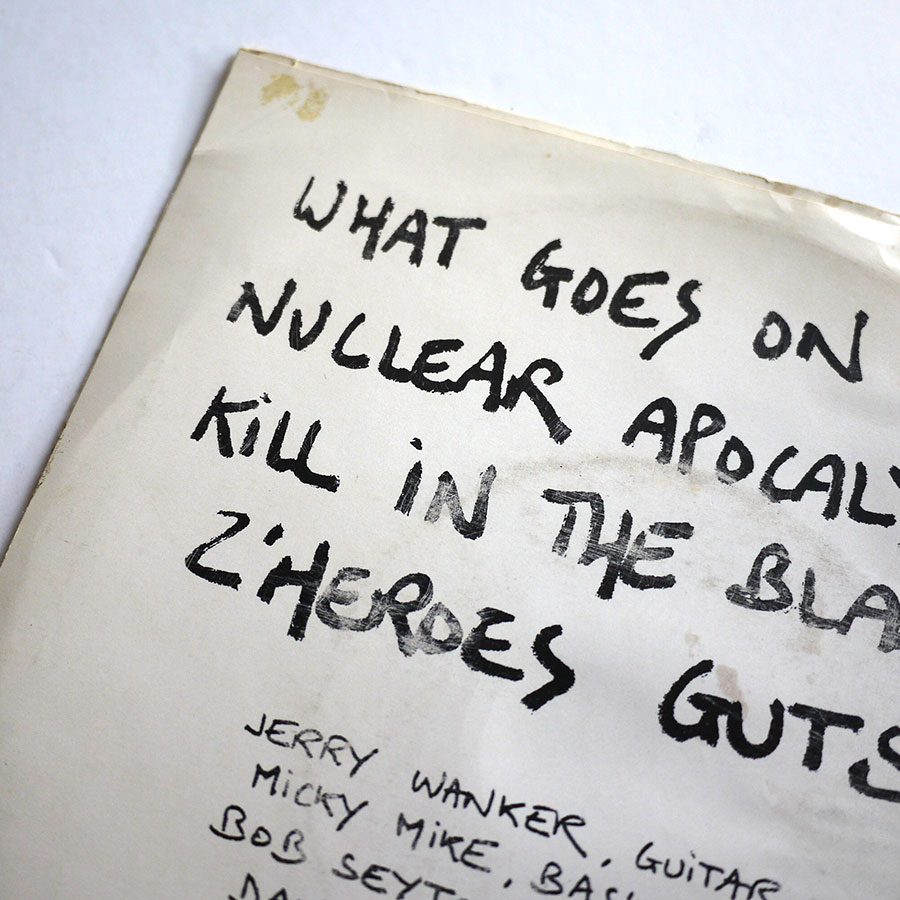 WHAT GOES ON
NUCLEAR APOCALY
KiLL iN THE BLA
Z'HEROES GUTS
JERRY WANKER, GUiTAR
MiCKY MiKE, BAS
BOB SEYT